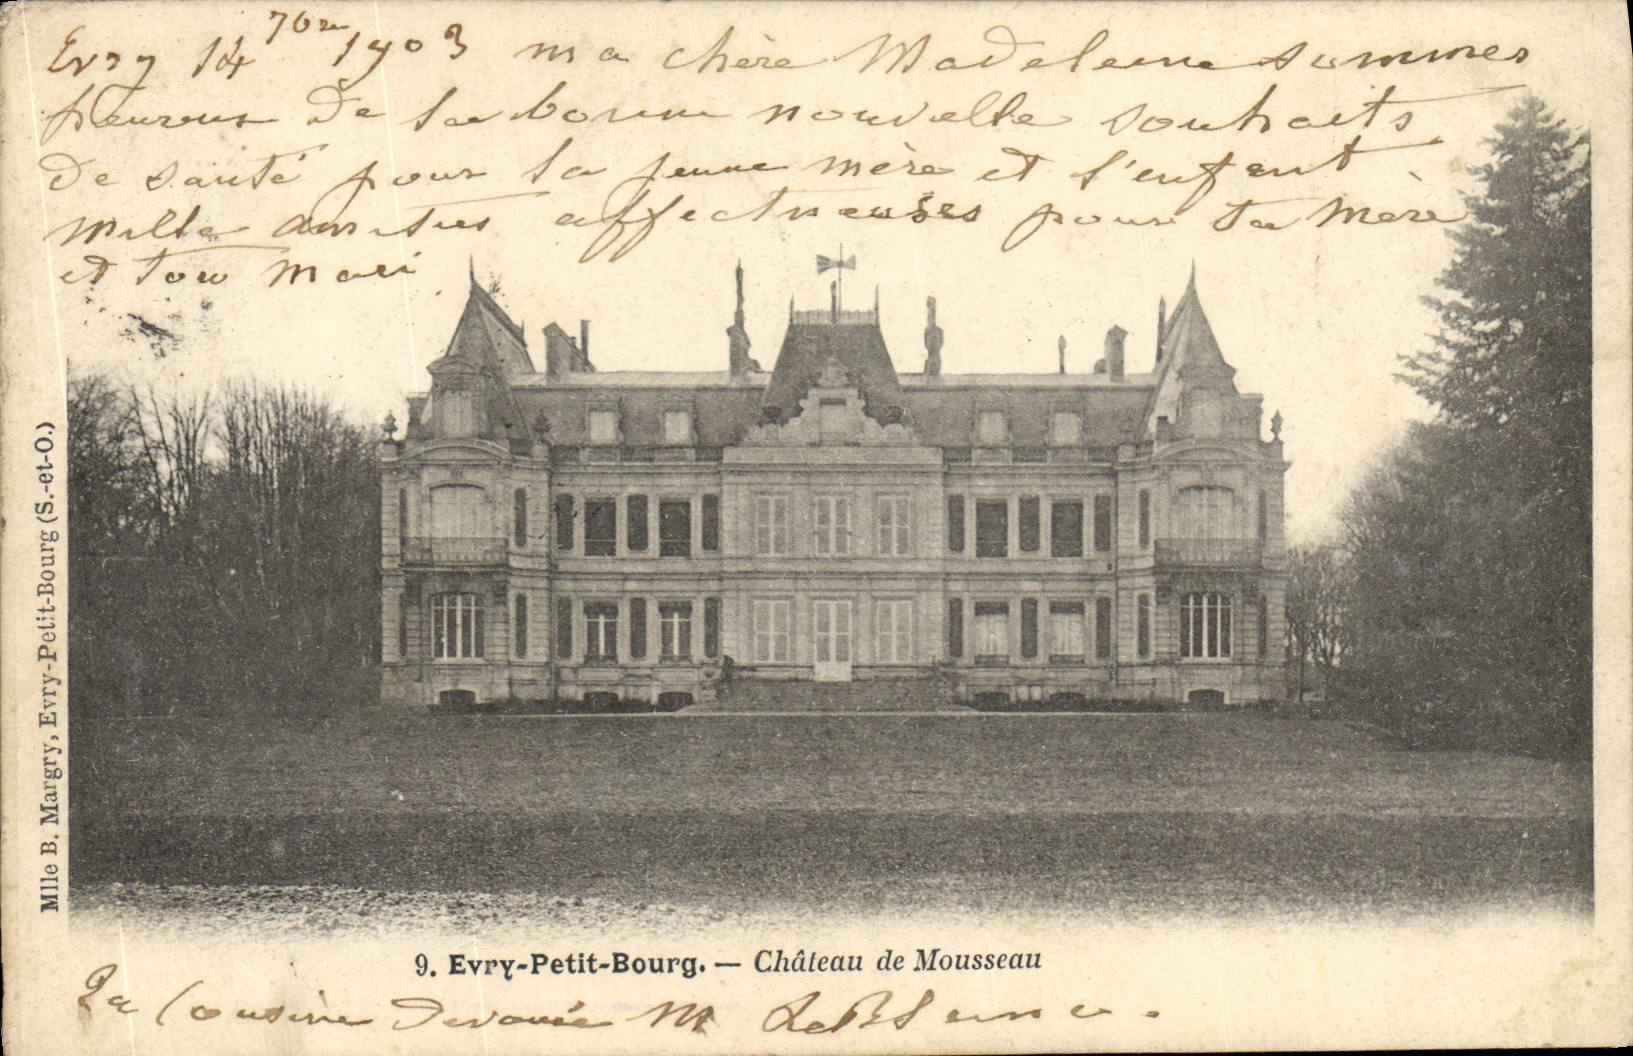 Evry 14 7bre 1903 ma chère Madeleine sommes
heureux de la bonne nouvelle souhaits
de santé pour la jeune mère et l'enfant
mille amitiés affectueuses pour ta mère
et ton mari
Mlle B. Margry, Evry-Petit-Bourg (S.-et-O.)
9. Evry-Petit-Bourg. — Château de Mousseau
Ta Cousine devouée M